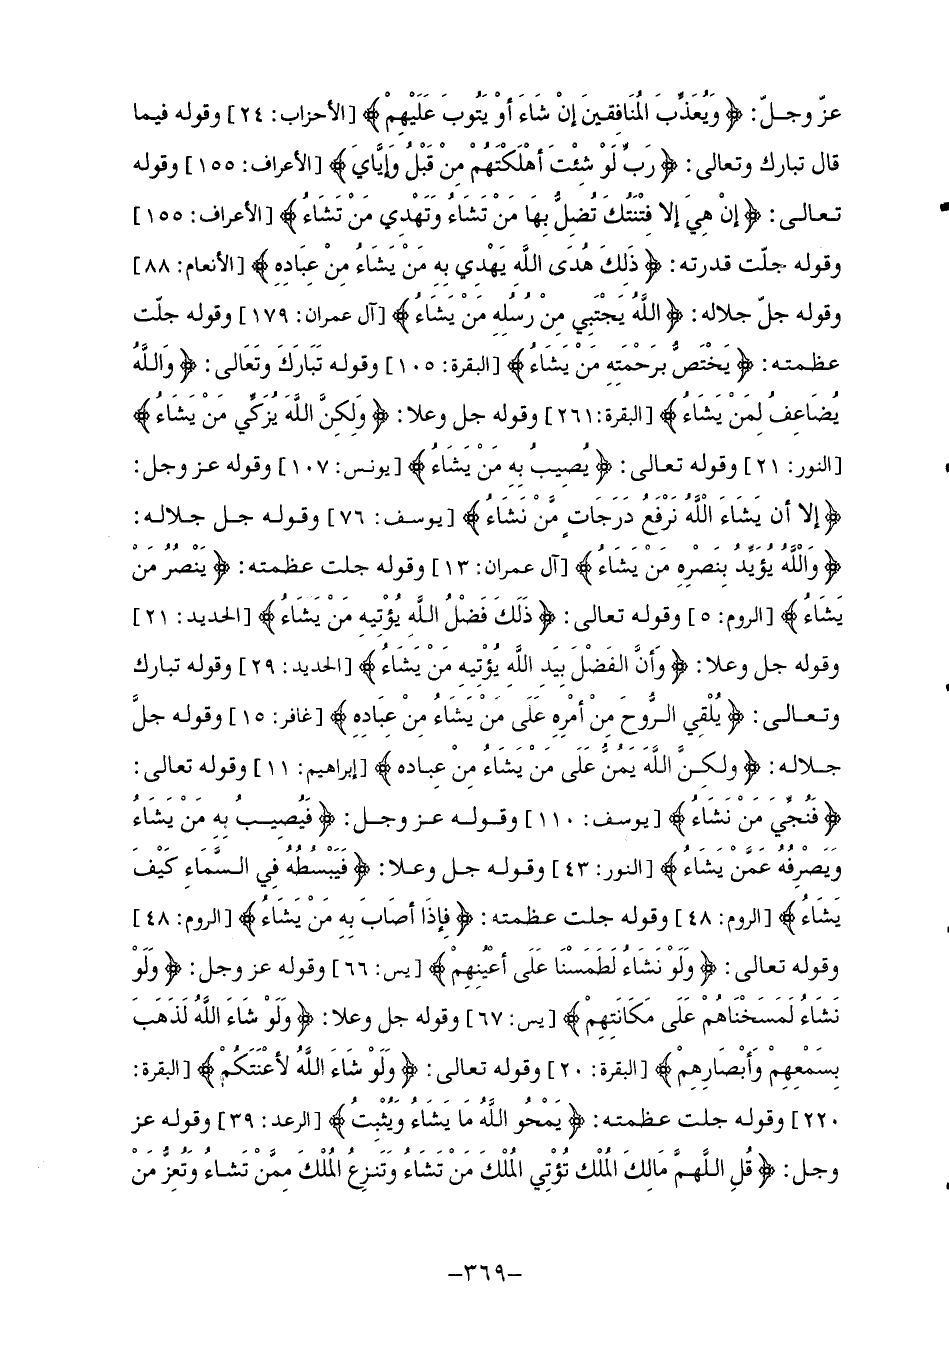 عزّ وجــلّ: ﴿ وَيُعَذِّبَ الْمُنَافِقِينَ إِنْ شَاءَ أَوْ يَتُوبَ عَلَيْهِمْ ﴾ [الأحزاب: ٢٤] وقوله فيما
قال تبارك وتعالى: ﴿ رَبِّ لَوْ شِئْتَ أَهْلَكْتَهُمْ مِنْ قَبْلُ وَإِيَّايَ ﴾ [الأعراف: ١٥٥] وقوله
تـعـالـى: ﴿ إِنْ هِيَ إِلا فِتْنَتُكَ تُضِلُّ بِهَا مَنْ تَشَاءُ وَتَهْدِي مَنْ تَشَاءُ ﴾ [الأعراف: ١٥٥]
وقوله جلّت قدرته: ﴿ ذَلِكَ هُدَى اللَّهِ يَهْدِي بِهِ مَنْ يَشَاءُ مِنْ عِبَادِهِ ﴾ [الأنعام: ٨٨]
وقوله جلّ جلاله: ﴿ اللَّهَ يَجْتَبِي مِنْ رُسُلِهِ مَنْ يَشَاءُ ﴾ [آل عمران: ١٧٩] وقوله جلّت
عظـمتـه: ﴿ يَخْتَصُّ بِرَحْمَتِهِ مَنْ يَشَاءُ ﴾ [البقرة: ١٠٥] وقوله تَبَارَكَ وتَعَالى: ﴿ وَاللَّهُ
يُضَاعِفُ لِمَنْ يَشَاءُ ﴾ [البقرة:٢٦١] وقوله جل وعلا: ﴿ وَلَكِنَّ اللَّهَ يُزَكِّي مَنْ يَشَاءُ ﴾
[النور: ٢١] وقوله تعـالى: ﴿ يُصِيبُ بِهِ مَنْ يَشَاءُ ﴾ [يونس: ١٠٧] وقوله عـز وجل:
﴿ إِلا أن يَشَاءَ اللَّهُ نَرْفَعُ دَرَجَاتٍ مَّنْ نَشَاءُ ﴾ [يـوسـف: ٧٦] وقـولـه جـل جـلالـه:
﴿ وَاللَّهُ يُؤَيِّدُ بِنَصْرِهِ مَنْ يَشَاءُ ﴾ [آل عمران: ١٣] وقوله جلت عظمته: ﴿ يَنْصُرُ مَنْ
يَشَاءُ ﴾ [الروم: ٥] وقوله تعـالى: ﴿ ذَلَكَ فَضْلُ اللَّهِ يُؤْتِيهِ مَنْ يَشَاءُ ﴾ [الحديد: ٢١]
وقوله جل وعلا: ﴿ وَأَنَّ الفَضْلَ بِيَدِ اللَّهِ يُؤْتِيهِ مَنْ يَشَاءُ ﴾ [الحديد: ٢٩] وقوله تبارك
وتـعـالـى: ﴿ يُلْقِي الـرُّوحَ مِنْ أَمْرِهِ عَلَى مَنْ يَشَاءُ مِنْ عِبَادِهِ ﴾ [غافر: ١٥] وقوله جلَّ
جــلاله: ﴿ ولـكـنَّ اللَّهَ يَمُنُّ عَلَى مَنْ يَشَاءُ مِنْ عِبـاده ﴾ [إبراهيم: ١١] وقوله تعالى:
﴿ فَنُجِّيَ مَنْ نَشَاءُ ﴾ [يوسف: ١١٠] وقـولـه عـز وجـل: ﴿ فَيُصِيـبُ بِهِ مَنْ يَشَاءُ
وَيَصْرِفُهُ عَمَّنْ يَشَاءُ ﴾ [النور: ٤٣] وقـولـه جـل وعـلا: ﴿ فَيَبْسُطُهُ فِي السَّمَاءِ كَيْفَ
يَشَاءُ ﴾ [الروم: ٤٨] وقوله جلت عظمته: ﴿ فَإِذَا أَصَابَ بِهِ مَنْ يَشَاءُ ﴾ [الروم: ٤٨]
وقوله تعالى: ﴿ وَلَوْ نَشَاءُ لَطَمَسْنَا عَلَى أَعْيُنِهِمْ ﴾ [يس: ٦٦] وقوله عز وجل: ﴿ وَلَوْ
نَشَاءُ لَمَسَخْنَاهُمْ عَلَى مَكَانَتِهِمْ ﴾ [يس: ٦٧] وقوله جل وعلا: ﴿ وَلَوْ شَاءَ اللَّهُ لَذَهَبَ
بِسَمْعِهِمْ وَأَبْصَارِهِمْ ﴾ [البقرة: ٢٠] وقوله تعـالى: ﴿ وَلَوْ شَاءَ اللَّهُ لأَعْنَتَكُمْ ﴾ [البقرة:
٢٢٠] وقوله جلت عـظمتـه: ﴿ يَمْحُو اللَّهُ مَا يَشَاءُ وَيُثْبِتُ ﴾ [الرعد: ٣٩] وقوله عز
وجـل: ﴿ قُلِ اللَّـهـمَّ مَالِكَ المُلْكِ تُؤْتِي المُلْكَ مَنْ تَشَاءُ وَتَنـزِعُ المُلْكَ مِمَّنْ تَشاءُ وَتُعِزُّ مَنْ
-٣٦٩-